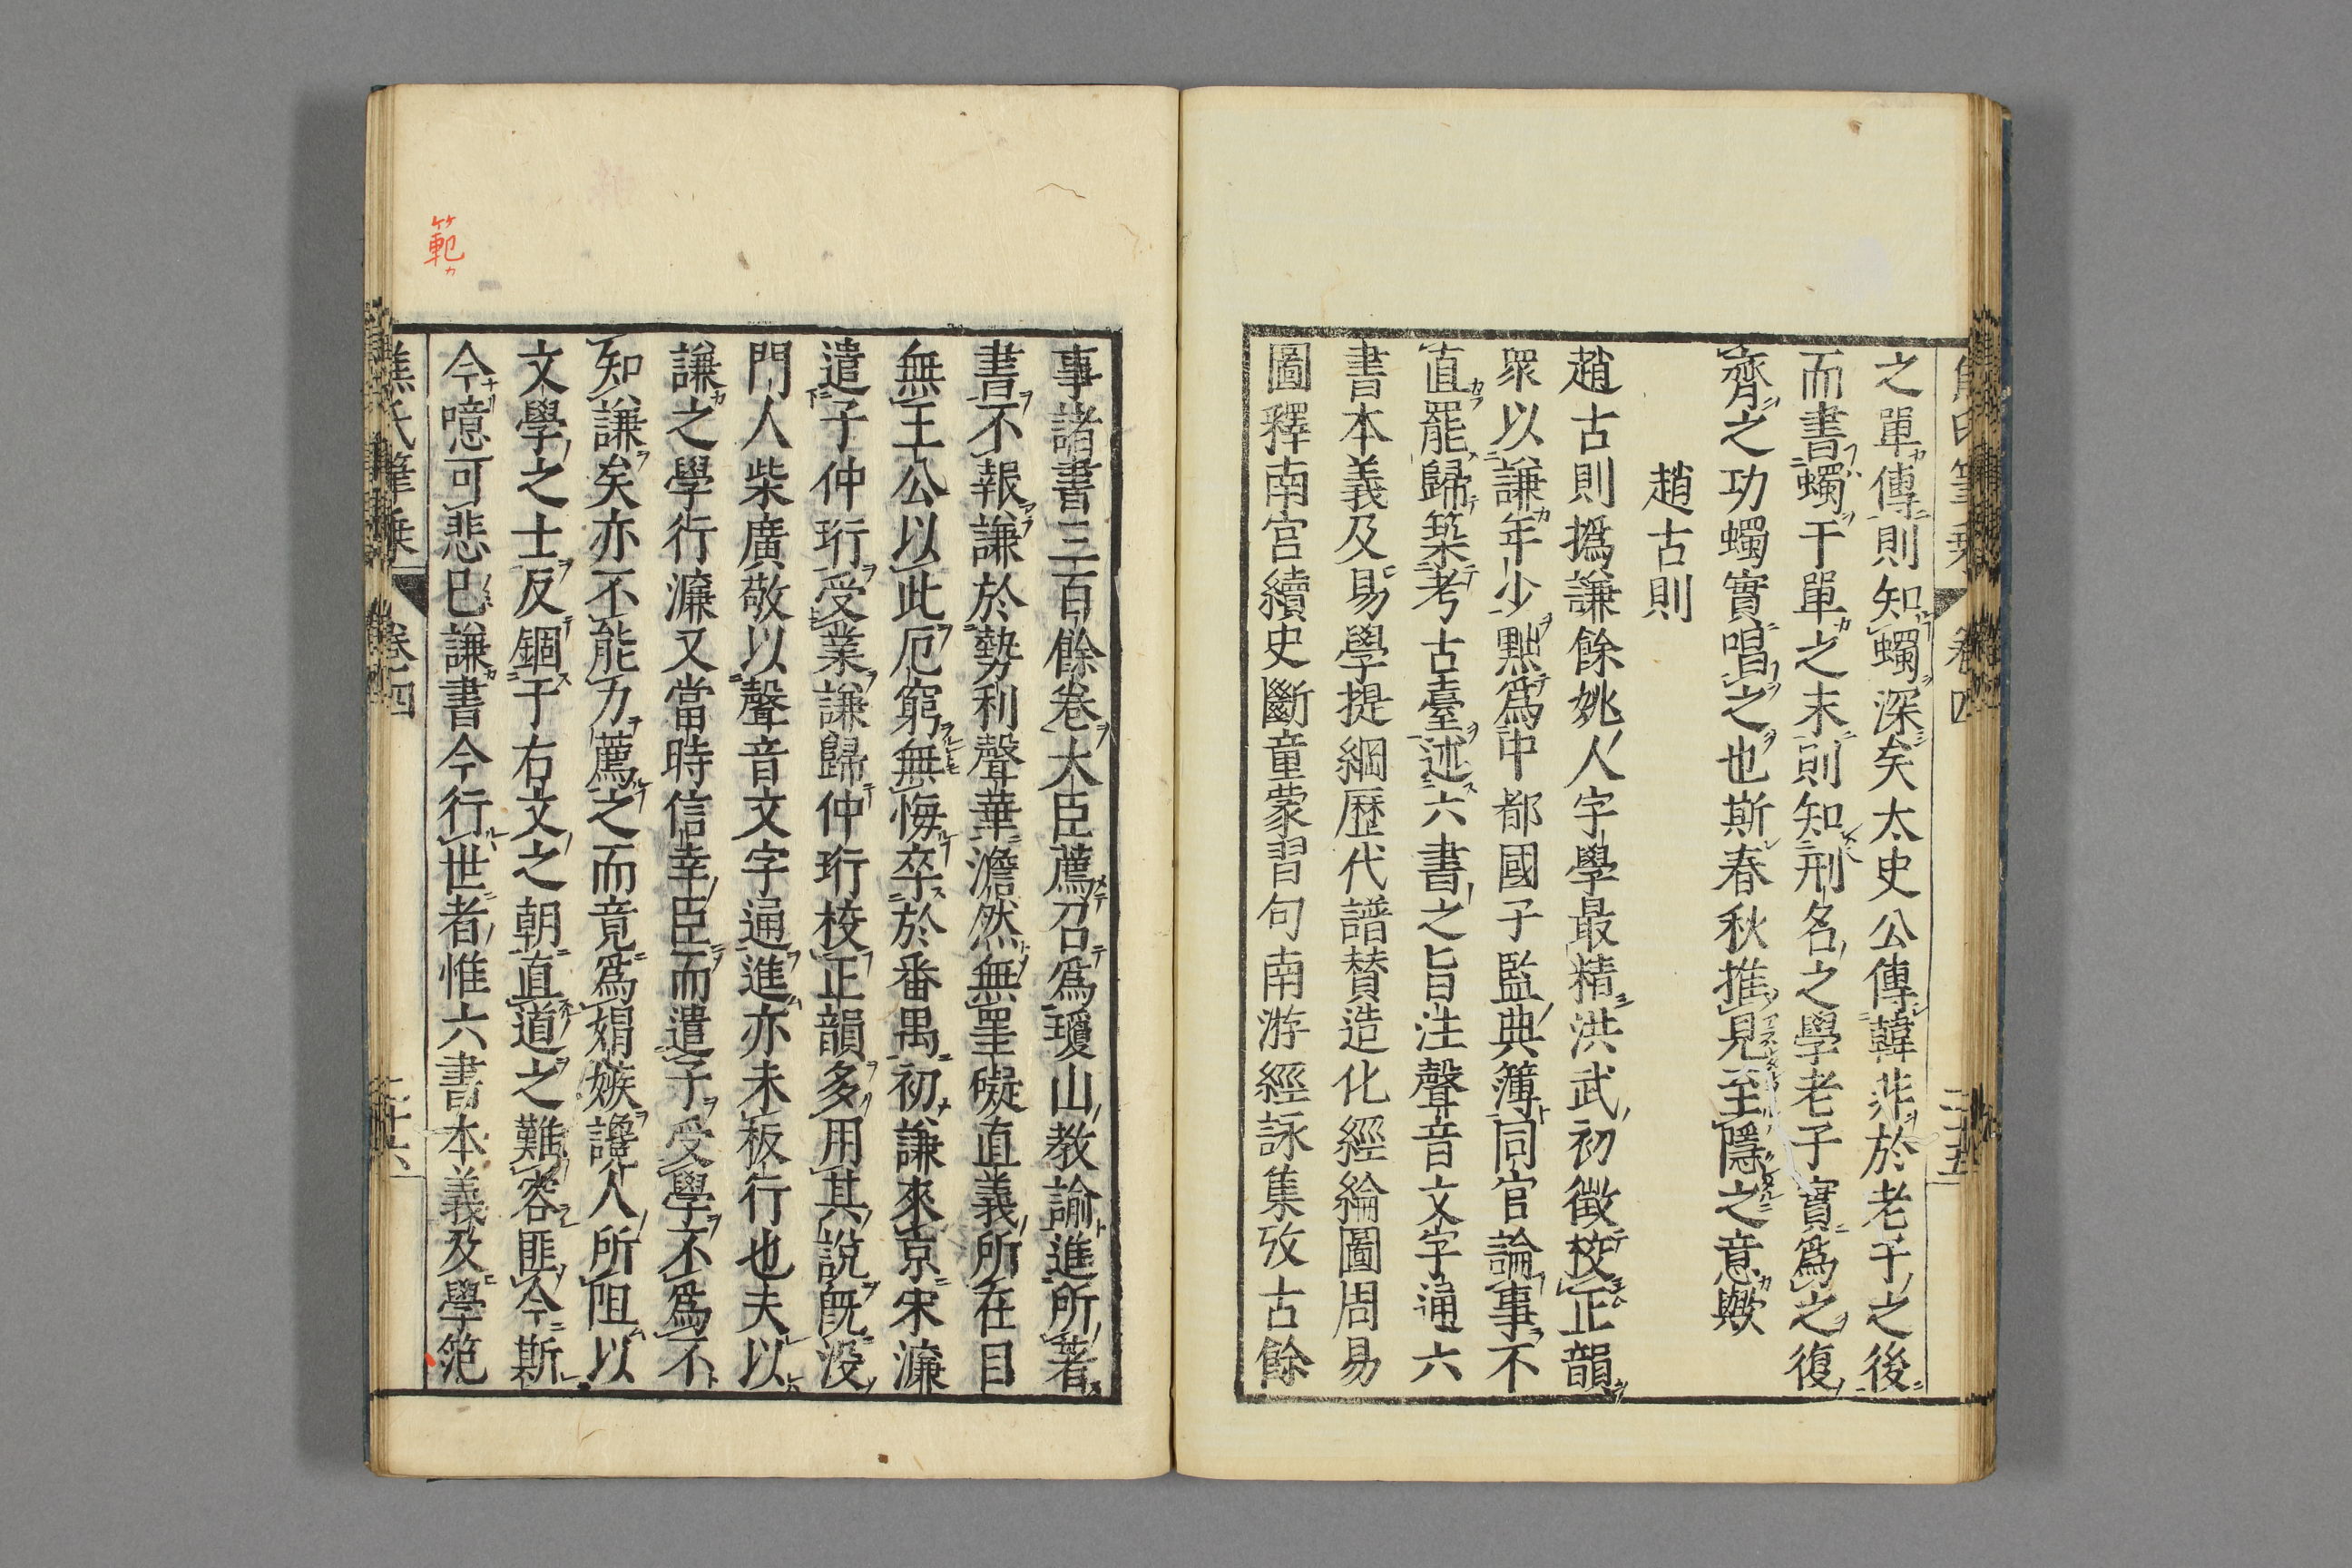 之單傳則知蠋深矣太史公傳韓非於老子之後
而書蠋于單之末則知刑名之學老子實爲之復
齊之功蠋實唱之也斯春秋推見至隱之意歟
趙古則
趙古則撝謙餘姚人字學最精洪武初徵校正韻
衆以謙年少黜爲中都國子監典簿同官論事不
直罷歸築考古臺述六書之旨注聲音文字通六
書本義及易學提綱歷代譜贊造化經綸圖周易
圖釋南宮續史斷童蒙習句南游經詠集攷古餘
事諸書三百餘卷大臣薦召爲瓊山教諭進所著
書不報謙於勢利聲華澹然無罣礙直義所在目
無王公以此厄窮無悔卒於番禺初謙來京宋濂
遣子仲珩受業謙歸仲珩校正韻多用其說旣沒
門人柴廣敬以聲音文字通進亦未板行也夫以
謙之學行濂又當時信幸臣而遣子受學不爲不
知謙矣亦不能力薦之而竟爲娟嫉讒人所阻以
文學之士反錮于右文之朝直道之難容匪今斯
今噫可悲巳謙書今行世者惟六書本義及學笵
焦氏筆乘 卷四 二十六
範カ